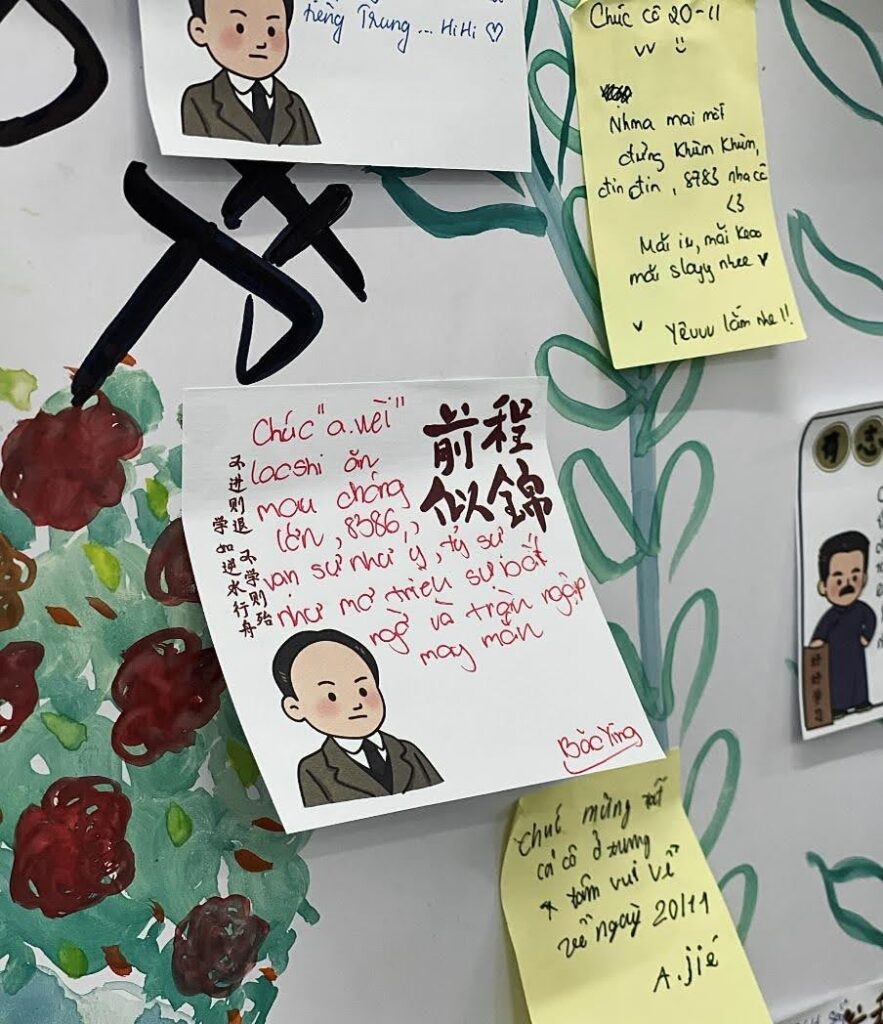 tiếng Trung ... HiHi ♡
Chúc cô 20-11
vv :)
Nhma mai mốt
đừng Khùm Khùm,
đin đin, 8783 nha cô
<3
Mãi iu, mãi keoo
mãi slayy nhee ♥
♥ Yêuuu lắm nhe!!
Chúc "a.wèi"
lacshi ăn
mau chóng
lớn, 8386,
vạn sự như ý, tỷ sự
như mơ triệu sự bất
ngờ và tràn ngập
may mắn
Bắc Ying
前程
似錦
不进则退
学如逆水行舟
不学则殆
好好学习
有志
Chúc mừng tất
cả cô ở trung
tâm vui vẻ
về ngày 20/11
A.jié